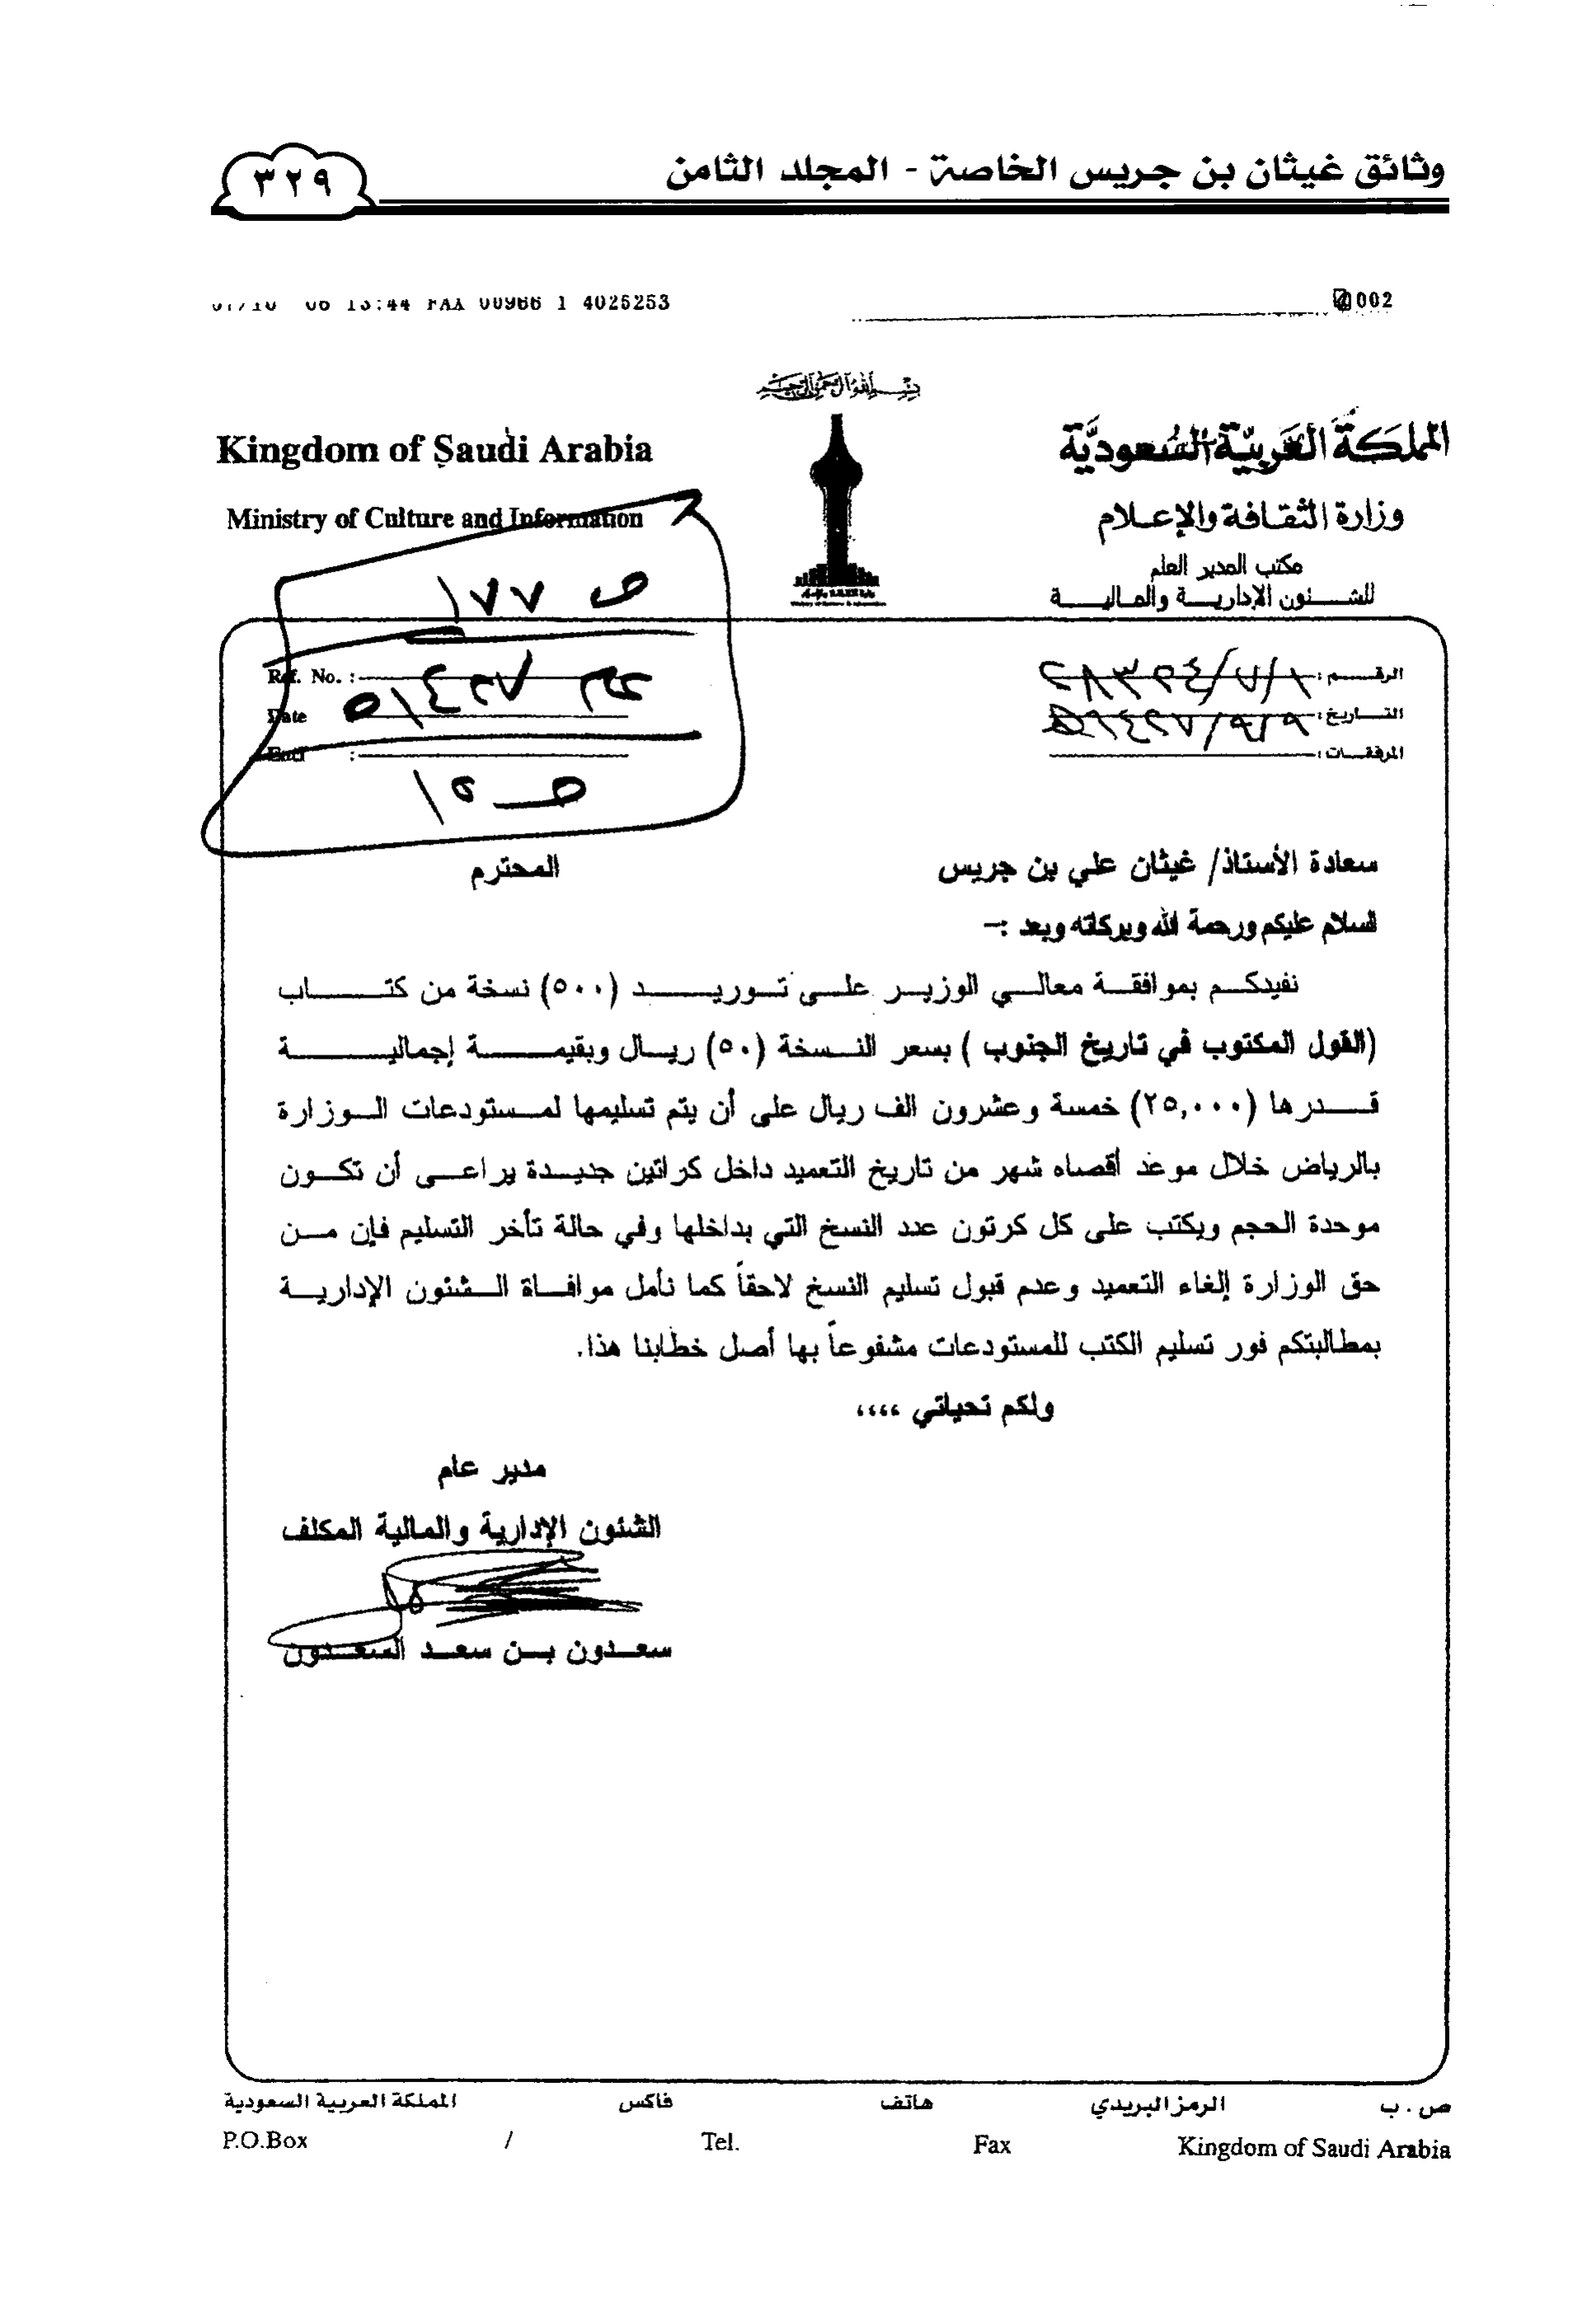 وثائق غيثان بن جريس الخاصة - المجلد الثامن
٣٢٩
06 13:44 FAX 00966 1 4025253
002
بسم الله الرحمن الرحيم
المملكة العربية السعودية
Kingdom of Saudi Arabia
وزارة الثقافة والإعلام
Ministry of Culture and Information
مكتب المدير العام
للشئون الإدارية والمالية
ص ١٧٧
الرقم:
Ref. No. :
عام ١٤٢٧هـ
التاريخ: ١٤٢٧/٩/٩هـ
Date
المرفقات:
Encl :
ص ١٥
سعادة الأستاذ/ غيثان علي بن جريس المحترم
السلام عليكم ورحمة الله وبركاته وبعد :-
نفيدكم بموافقة معالي الوزير على توريد (٥٠٠) نسخة من كتاب
(القول المكتوب في تاريخ الجنوب ) بسعر النسخة (٥٠) ريال وبقيمة إجمالية
قدرها (٢٥,٠٠٠) خمسة وعشرون الف ريال على أن يتم تسليمها لمستودعات الوزارة
بالرياض خلال موعد أقصاه شهر من تاريخ التعميد داخل كراتين جديدة يراعى أن تكون
موحدة الحجم ويكتب على كل كرتون عدد النسخ التي بداخلها وفي حالة تأخر التسليم فإن من
حق الوزارة إلغاء التعميد وعدم قبول تسليم النسخ لاحقاً كما نأمل موافاة الشئون الإدارية
بمطالبتكم فور تسليم الكتب للمستودعات مشفوعاً بها أصل خطابنا هذا.
ولكم تحياتي ،،،،
مدير عام
الشئون الإدارية والمالية المكلف
سعدون بن سعد السعدون
ص . ب الرمز البريدي هاتف فاكس المملكة العربية السعودية
P.O.Box / Tel. Fax Kingdom of Saudi Arabia